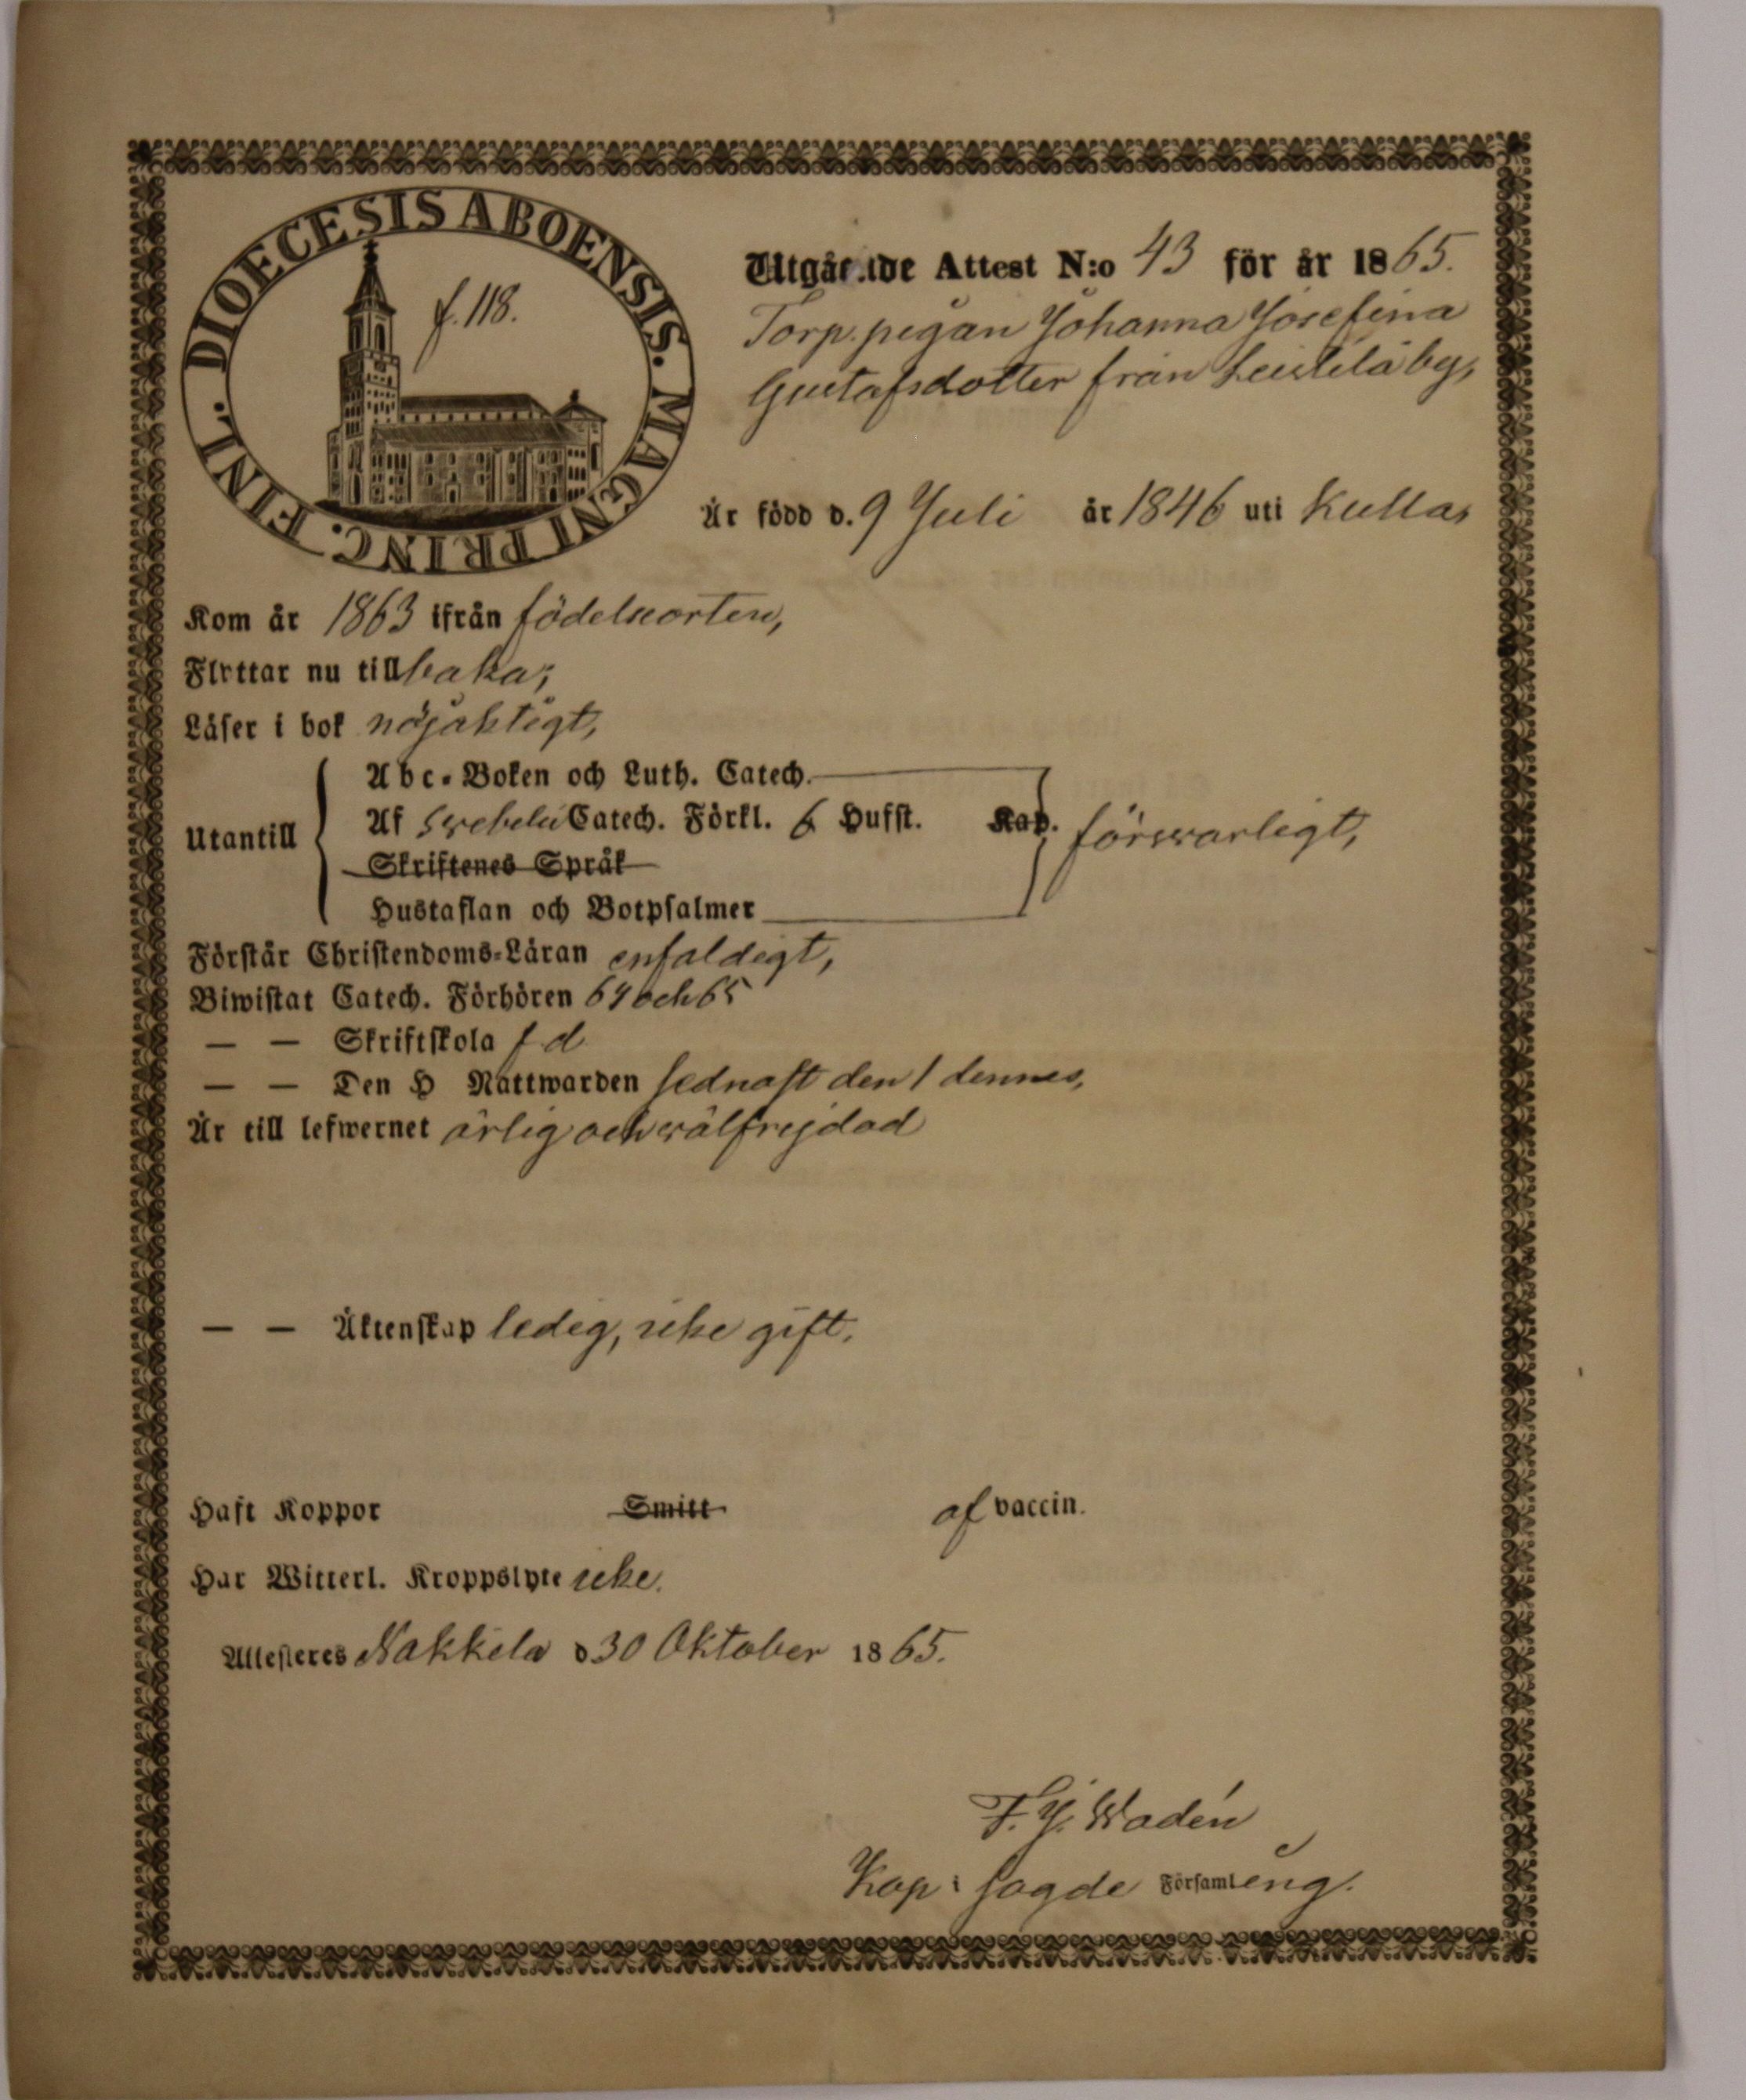 DIOECESIS ABOENSIS. MAGNI PRINC. FINL.
f. 118.
Utgående Attest N:o 43 för år 1865.
Torp. pigan Johanna Josefina
Gustafsdotter från Leistilä by,
Är född d. 9 Juli år 1846 uti Kullas
Kom år 1863 ifrån födelseorten,
Flyttar nu tillbaka;
Läser i bok nöjaktigt,
Utantill
Abc-Boken och Luth. Catech.
Af Svebelii Catech. Förkl. 6 Hufst. Kap. förswarligt,
Skriftenes Språk
Hustaflan och Botpsalmer
Förstår Christendoms-Läran enfaldigt,
Biwistat Catech. Förhören 64 och 65
— — Skriftskola f d
— — Den H Nattwarden sednast den 1 dennes,
Är till lefwernet ärlig och wälfrejdad
— — Äktenskap ledig, icke gift.
Haft Koppor Smitt af vaccin.
Har Witterl. Kroppslyte icke.
Attesteres Nakkila d 30 Oktober 1865.
F. J. Wadén
Kap i sagde Församling.